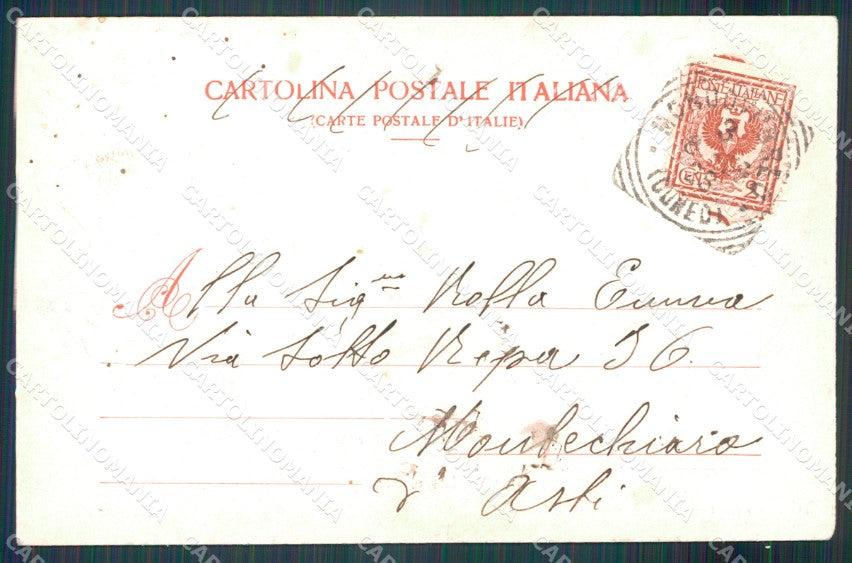 CARTOLINA POSTALE ITALIANA
(CARTE POSTALE D'ITALIE)
POSTE ITALIANE
CENT. 2
(CUNEO)
Alla Sig.na Rolla Emma
Via Sotto Ripa 36
Montechiaro
d'Asti
CARTOLINOMANIA